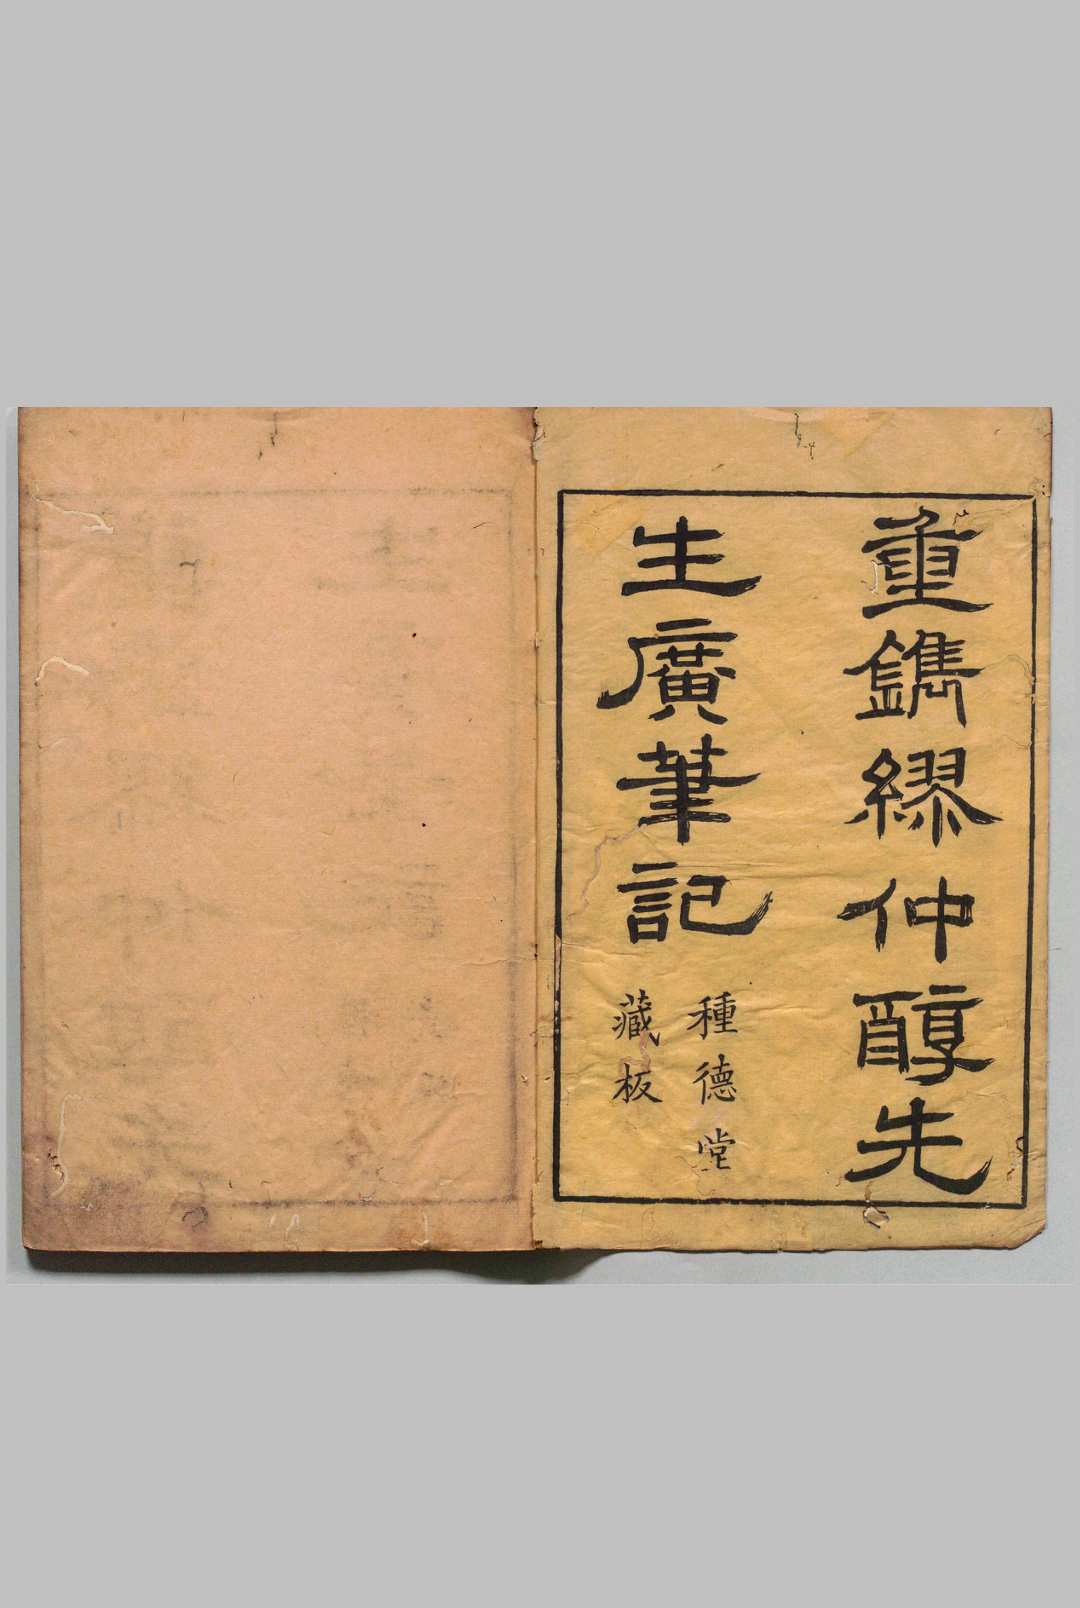 重鐫繆仲醇先
生廣筆記
種德堂
藏板